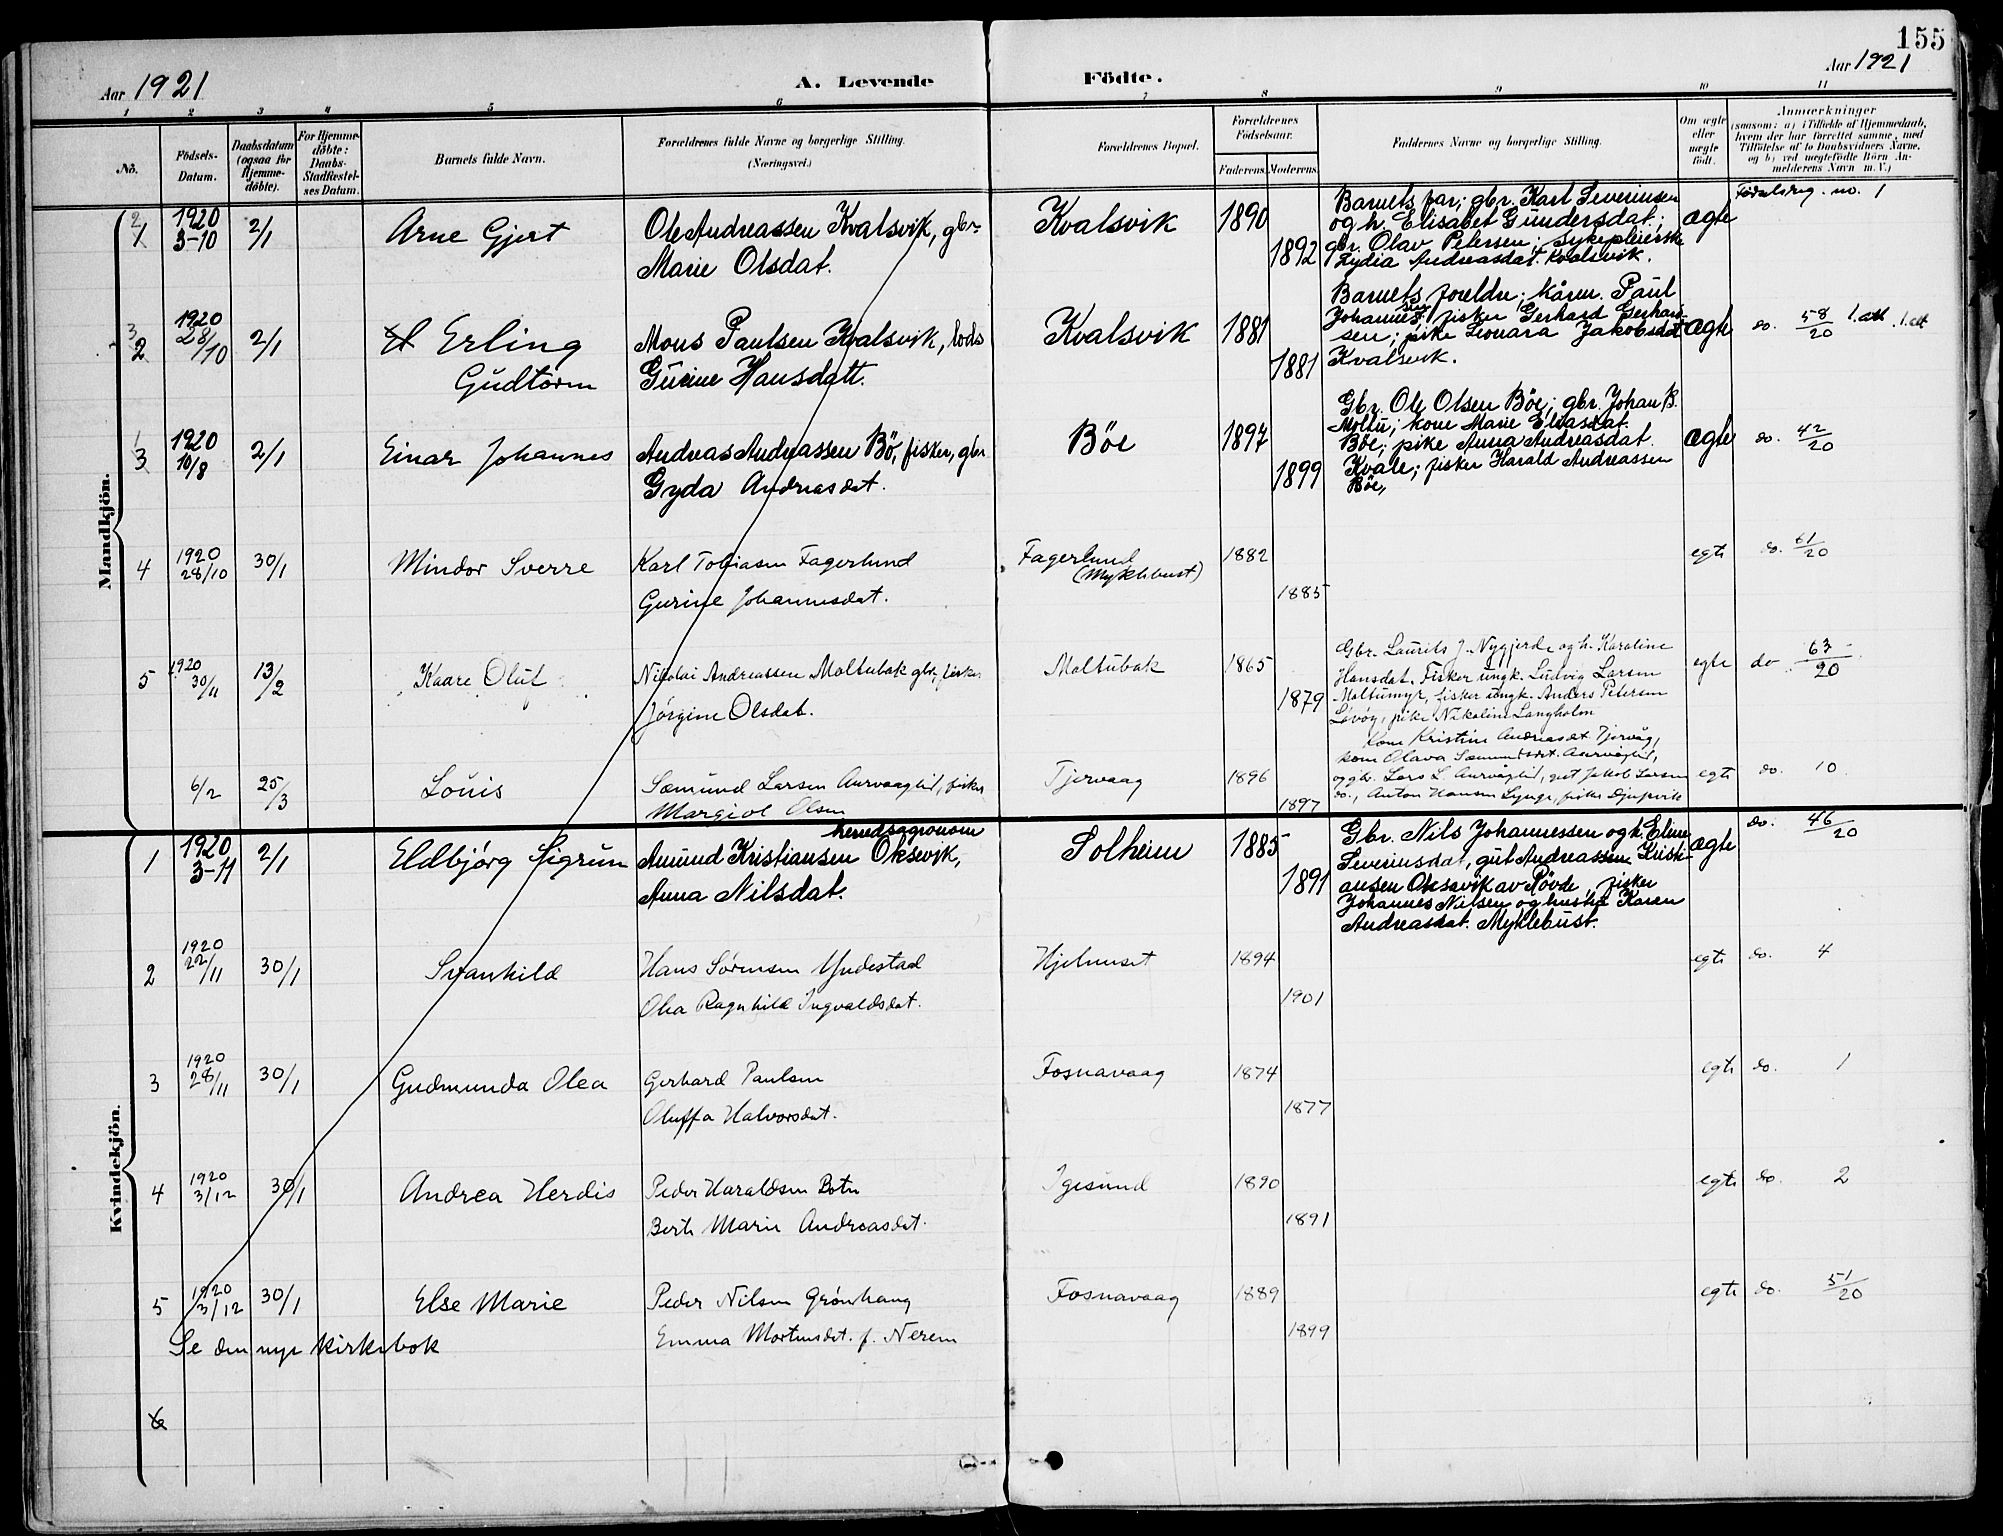 155
Aar 1921
A. Levende Födte.
Aar 1921
1 2 3 4 5 6 7 8 9 10 11
No.
Födsels-Datum.
Daabsdatum (ogsaa for Hjemme-döbte).
For Hjemme-döbte: Daabs-Stadfæstel-ses Datum.
Barnets fulde Navn.
Forældrenes fulde Navne og borgerlige Stilling. (Næringsvei.)
Forældrenes Bopæl.
Forældrenes Födselsaar.
Faderens. Moderens.
Faddernes Navne og borgerlige Stilling.
Om ægte eller uægte födt.
Anmærkninger
(saasom: a) i Tilfælde af Hjemmedaab, hvem der har forrettet samme, med Tilföielse af to Daabsvidners Navne, og b) ved uægtefödte Börn An-melderens Navn m. V.)
Mandkjön.
2 1 1920 3-10 2/1 Arne Gjert Ole Andreassen Kvalsvik, gbr. Kvalsvik 1890 ægte Fødselsreg. no. 1
Marie Olsdat. 1892
Barnets far; gbr. Karl Severinsen
og h. Elisabet Gundersdat.;
gbr. Olav Petersen; sykepleierske
Lydia Andreasdat. Kvalsvik.
3 2 1920 28/10 2/1 Erling Mons Paulsen Kvalsvik, lods Kvalsvik 1881 ægte do. 58/20 l. att. l. att
Gudtorm Gurine Hansdatt. 1881
Barnets foreldre; kårm. Paul
Johannessen; fisker Gerhard Gerhard-
sen; pike Leonara Jakobsdat
Kvalsvik.
1 3 1920 10/8 2/1 Einar Johannes Andreas Andreassen Bö, fisker, gbr Böe 1897 ægte do. 42/20
Gyda Andreasdat. 1899
Gbr. Ole Olsen Böe; gbr. Johan B.
Moltu; kone Marie Eliasdat.
Böe; pike Anna Andreasdat.
Kvale; fisker Harald Andreassen
Böe,
4 1920 28/10 30/1 Mindor Sverre Karl Tobiasen Fagerlund Fagerlund 1882 egte do. 61/20
(Myklebust)
Gurine Johannesdat. 1885
5 1920 30/11 13/2 Kaare Oluf Nikolai Andreassen Moltubak gbr. fisker Moltubak 1865 egte do 63/20
Jörgine Olsdat. 1879
Gbr. Laurits J. Nygjerde og h. Karoline
Hansdat. Fisker ungk. Ludvig Larsen
Moltumyr, fisker ungk. Anders Petersen
Lövöy, pike Nikoline Langholm
6/2 25/3 Louis Sæmund Larsen Aurvaaglid, fisker Tjervaag 1896 egte do. 10
Margiot Olsen 1897
Kone Kristine Andreasdt. Tjervåg,
kone Olava Sæmundsdt. Aurvåglid,
og gbr. Lars L. Aurvåglid, gut Jakob Larsen
do., Anton Hansen Lynge, fisker Djupvik
Kvindekjön.
1 1920 3-11 2/1 Eldbjörg Sigrun Amund Kristiansen Oksevik, herredsagronom Solheim 1885 ægte do. 46/20
Anna Nilsdat. 1891
Gbr. Nils Johannessen og h. Eline
Severinsdat, gut Andreassen Kristi-
ansen Oksavik av Rövde, fisker
Johannes Nilsen og hustru Karen
Andreasdat. Myklebust.
2 1920 22/11 30/1 Svanhild Hans Sörensen Yndestad Hjelmeset 1894 egte do. 4
Olea Ragnhild Ingvaldsdat. 1901
3 1920 28/11 30/1 Gudmunda Olea Gerhard Paulsen Fosnavaag 1874 egte do. 1
Oluffa Halvorsdat. 1877
4 1920 3/12 30/1 Andrea Herdis Peder Haraldsen Botn Igesund 1890 egte do. 2
Berte Marie Andreasdat. 1891
5 1920 3/12 30/1 Else Marie Peder Nilsen Grönhaug Fosnavaag 1889 egte do. 51/20
Emma Mortensdat. f. Nerem 1899
Se den nye kirkebok
6